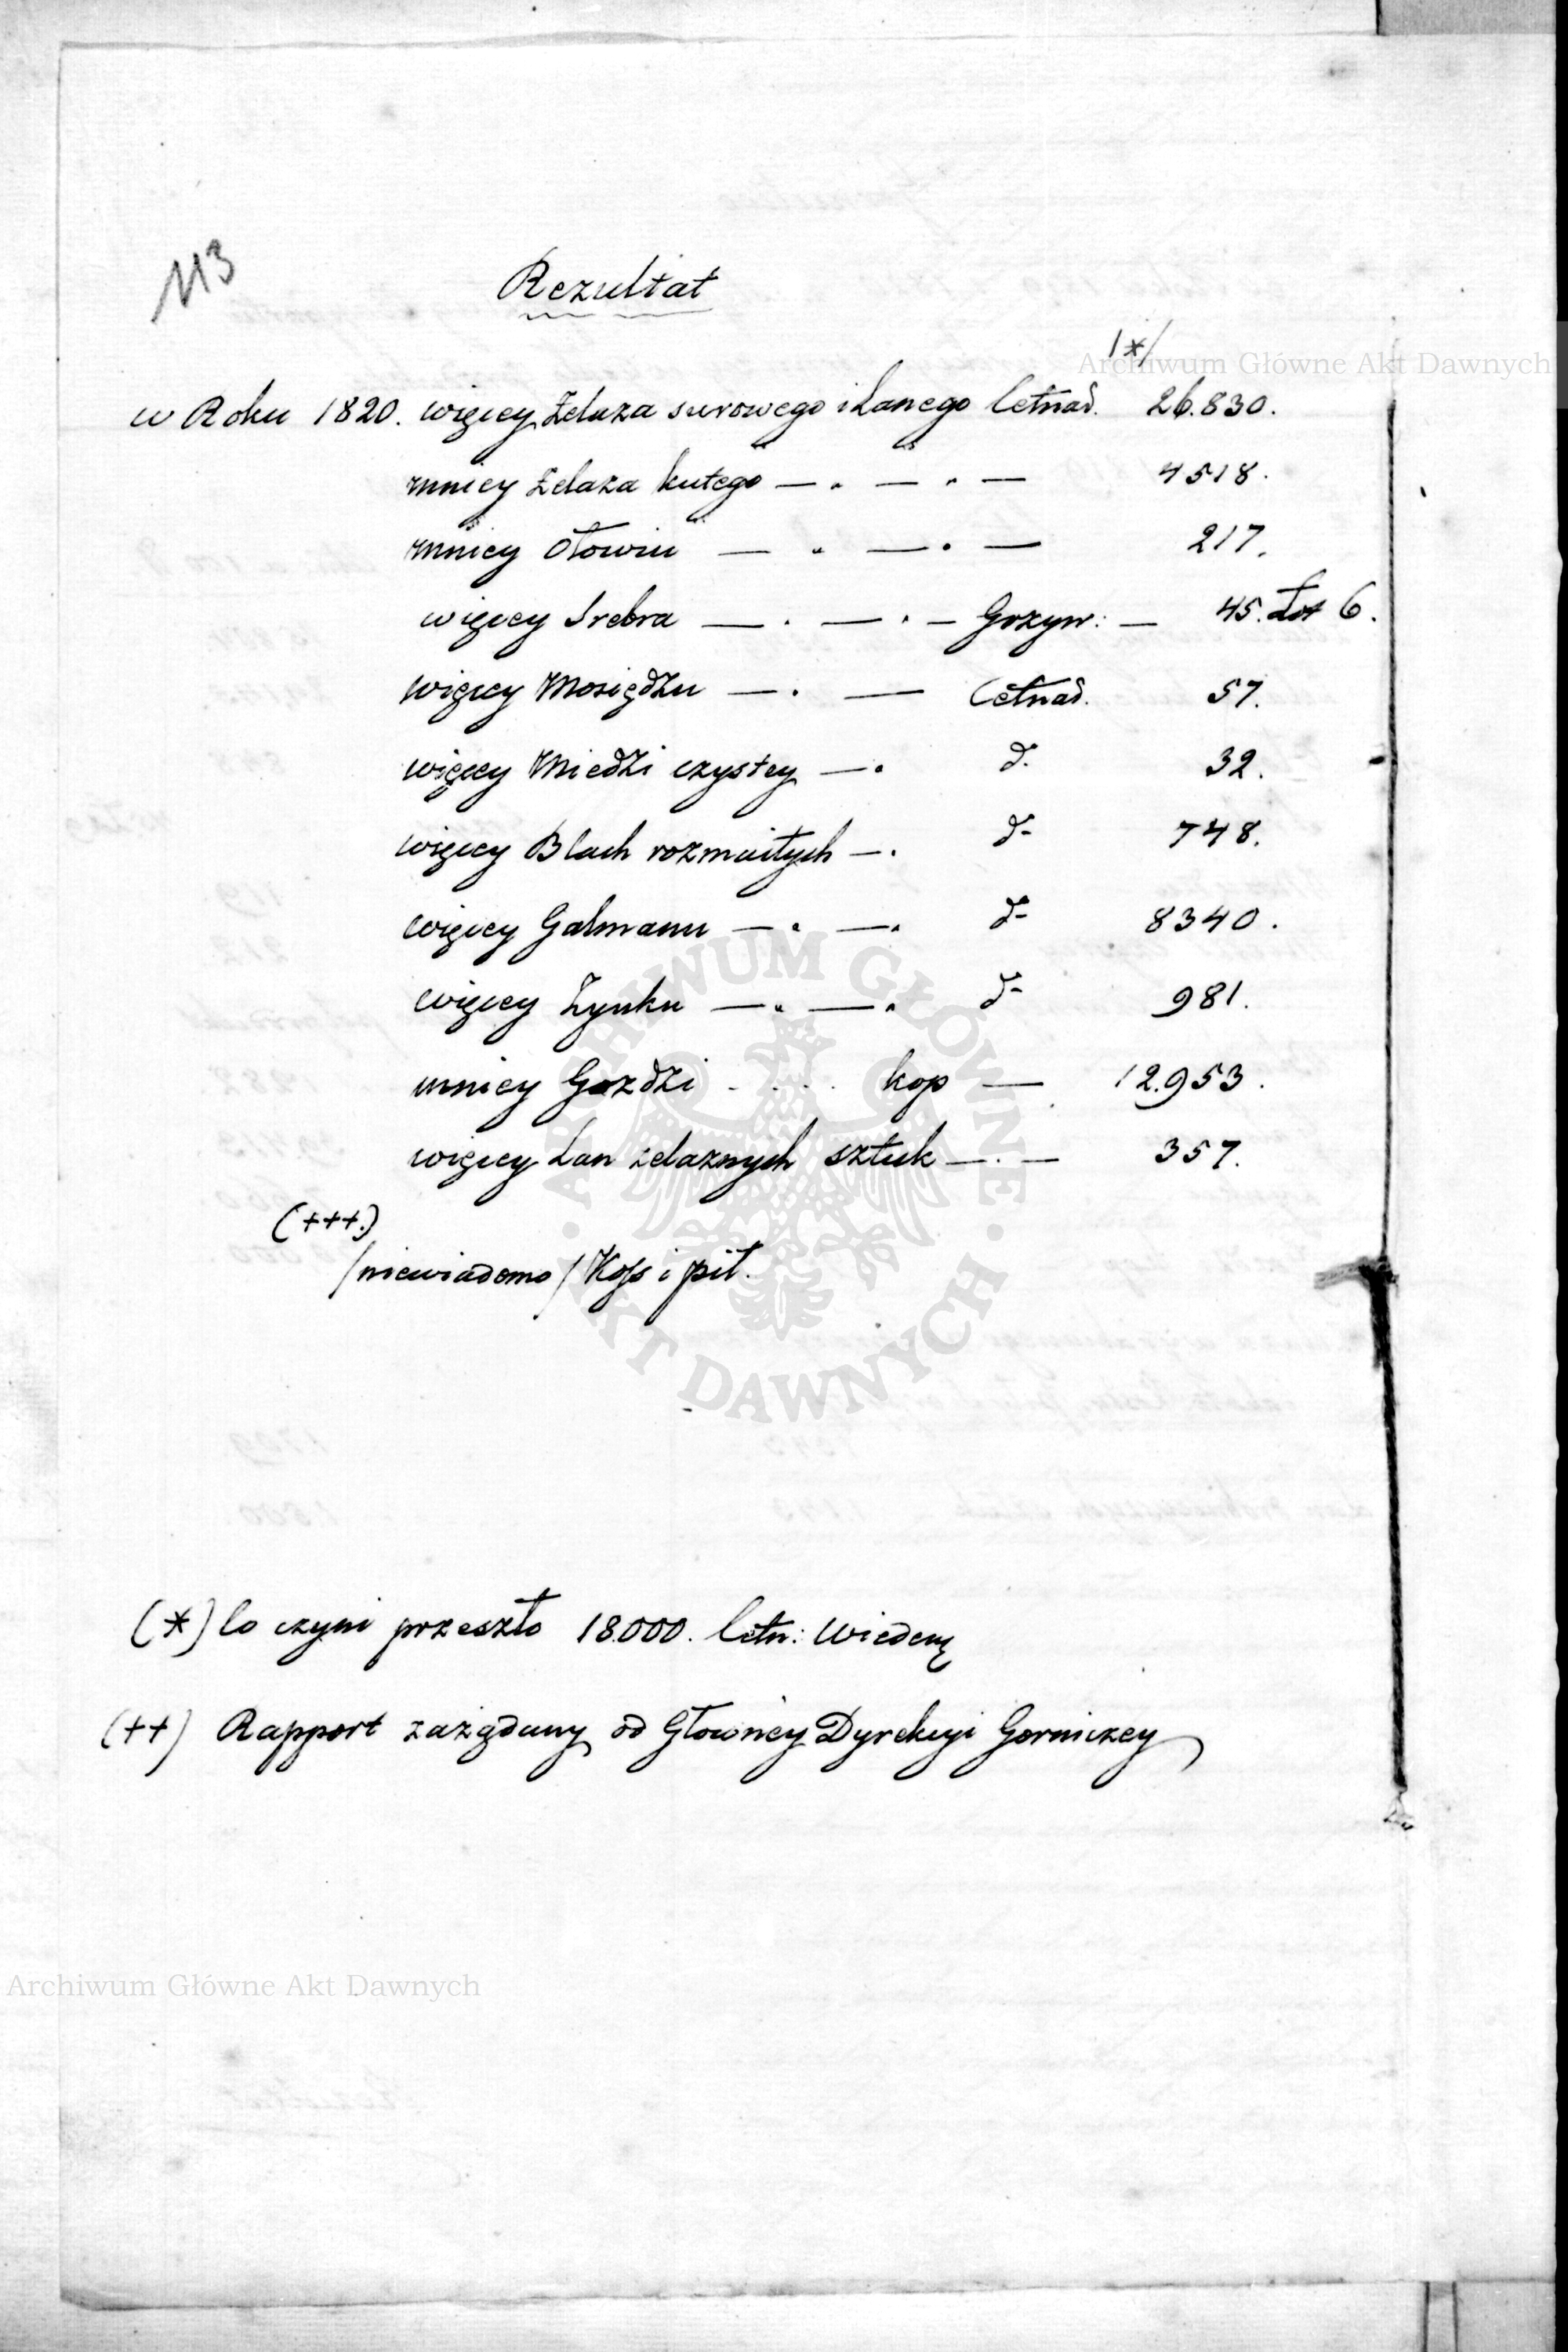 113
Rezultat
/*/
w Roku 1820. więcey Żelaza surowego i Lanego Cetnad. 26.830.
mniey Żelaza kutego — . — . — 4518.
mniey Ołowiu — . — . — 217.
więcey Srebra — . — . — Grzyw: — 45. Łot 6.
więcey Mosiędzu — . — Cetnad. 57.
więcey Miedzi czystey — . d. 32.
więcey Blach rozmaitych — . d- 748.
więcey Galmanu — . — . d- 8340.
więcey Zynku — . — . d- 981.
mniey Gozdzi . . . . kop — 12.953.
więcey Lan zelaznych sztuk — . — 357.
(+++.)
/niewiadomo/ Kos i pił.
(*) Co czyni przeszło 18.000. Cetn: Wiedeń
(++) Rapport zażądany od Głowney Dyrekcyi Gorniczey
Archiwum Główne Akt Dawnych
ARCHIWUM GŁÓWNE AKT DAWNYCH
Archiwum Główne Akt Dawnych